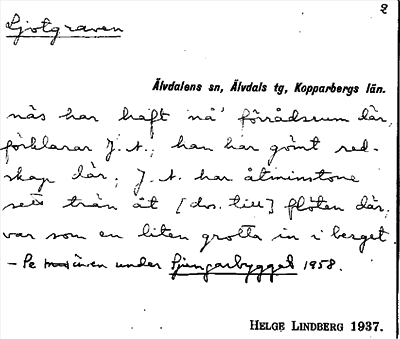 2
Ljotgraven
Älvdalens sn, Älvdals tg, Kopparbergs län.
näs har haft nå' förrådsrum där,
förklarar J. A.; han har gömt red-
skap där; J. A. har åtminstone
sett trän åt [dvs. till] flöten där;
var som en liten grotta in i berget.
– Se även under 1958.
HELGE LINDBERG 1937.